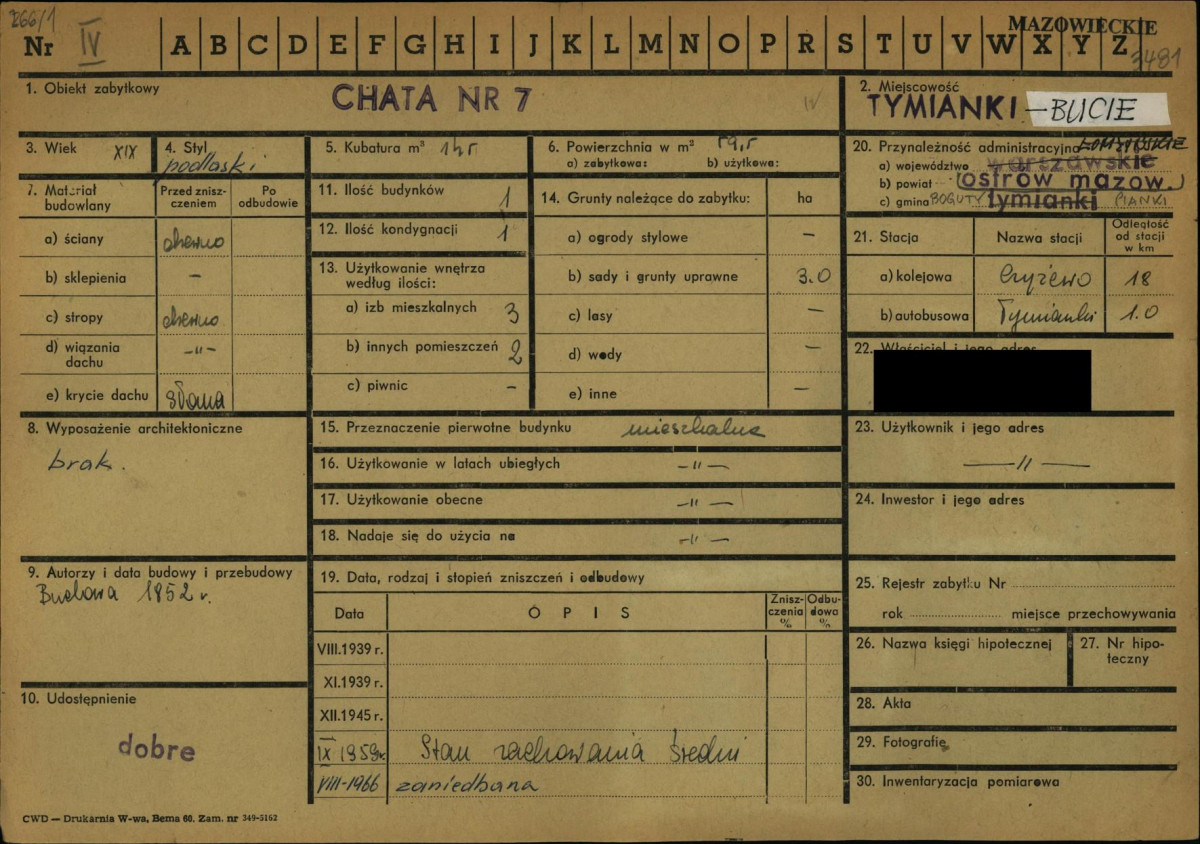 266/1
MAZOWIECKIE
Nr IV A B C D E F G H I J K L M N O P R S T U V W X Y Z
3481
1. Obiekt zabytkowy
CHATA NR 7
IV
2. Miejscowość
TYMIANKI-BUCIE
3. Wiek XIX
4. Styl
podlaski
5. Kubatura m³
6. Powierzchnia w m²
a) zabytkowa: b) użytkowa:
20. Przynależność administracyjna ŁOMŻYŃSKIE
a) województwo warszawskie
b) powiat (ostrów mazow.)
c) gmina BOGUTY tymianki PIANKI
7. Materiał budowlany
Przed znisz-
czeniem
Po
odbudowie
a) ściany drewno
b) sklepienia -
c) stropy drewno
d) wiązania
dachu -"-
e) krycie dachu słoma
11. Ilość budynków 1
12. Ilość kondygnacji 1
13. Użytkowanie wnętrza
według ilości:
a) izb mieszkalnych 3
b) innych pomieszczeń 2
c) piwnic -
14. Grunty należące do zabytku: ha
a) ogrody stylowe -
b) sady i grunty uprawne 3.0
c) lasy -
d) wody -
e) inne -
21. Stacja Nazwa stacji
Odległość
od stacji
w km
a) kolejowa Czyżewo 18
b) autobusowa Tymianki 1.0
22. Właściciel i jego adres
8. Wyposażenie architektoniczne
brak.
15. Przeznaczenie pierwotne budynku mieszkalne
16. Użytkowanie w latach ubiegłych -"-
17. Użytkowanie obecne -"-
18. Nadaje się do użycia na -"-
23. Użytkownik i jego adres
-"-
24. Inwestor i jego adres
9. Autorzy i data budowy i przebudowy
Budowa 1852 r.
19. Data, rodzaj i stopień zniszczeń i odbudowy
Data
OPIS
Znisz-
czenia
%
Odbu-
dowa
%
VIII.1939 r.
XI.1939 r.
XII.1945 r.
IX 1959r. Stan zachowania średni
VIII-1966 zaniedbana
25. Rejestr zabytku Nr
rok miejsce przechowywania
26. Nazwa księgi hipotecznej
27. Nr hipo-
teczny
10. Udostępnienie
dobre
28. Akta
29. Fotografie
30. Inwentaryzacja pomiarowa
CWD — Drukarnia W-wa, Bema 60. Zam. nr 349-5162